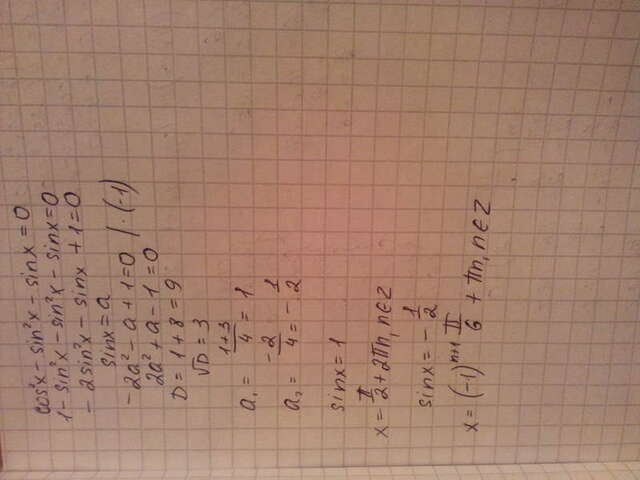 cos²x - sin²x - sinx = 0
1 - sin²x - sin²x - sinx = 0
- 2sin²x - sinx + 1 = 0
sinx = a
- 2a² - a + 1 = 0 / · (-1)
2a² + a - 1 = 0
D = 1 + 8 = 9
√D = 3
a₁ = (1+3)/4 = 1
a₂ = -2/4 = - 1/2
sinx = 1
x = π/2 + 2πn, n∈Z
sinx = - 1/2
x = (-1)ⁿ⁺¹ π/6 + πn, n∈Z